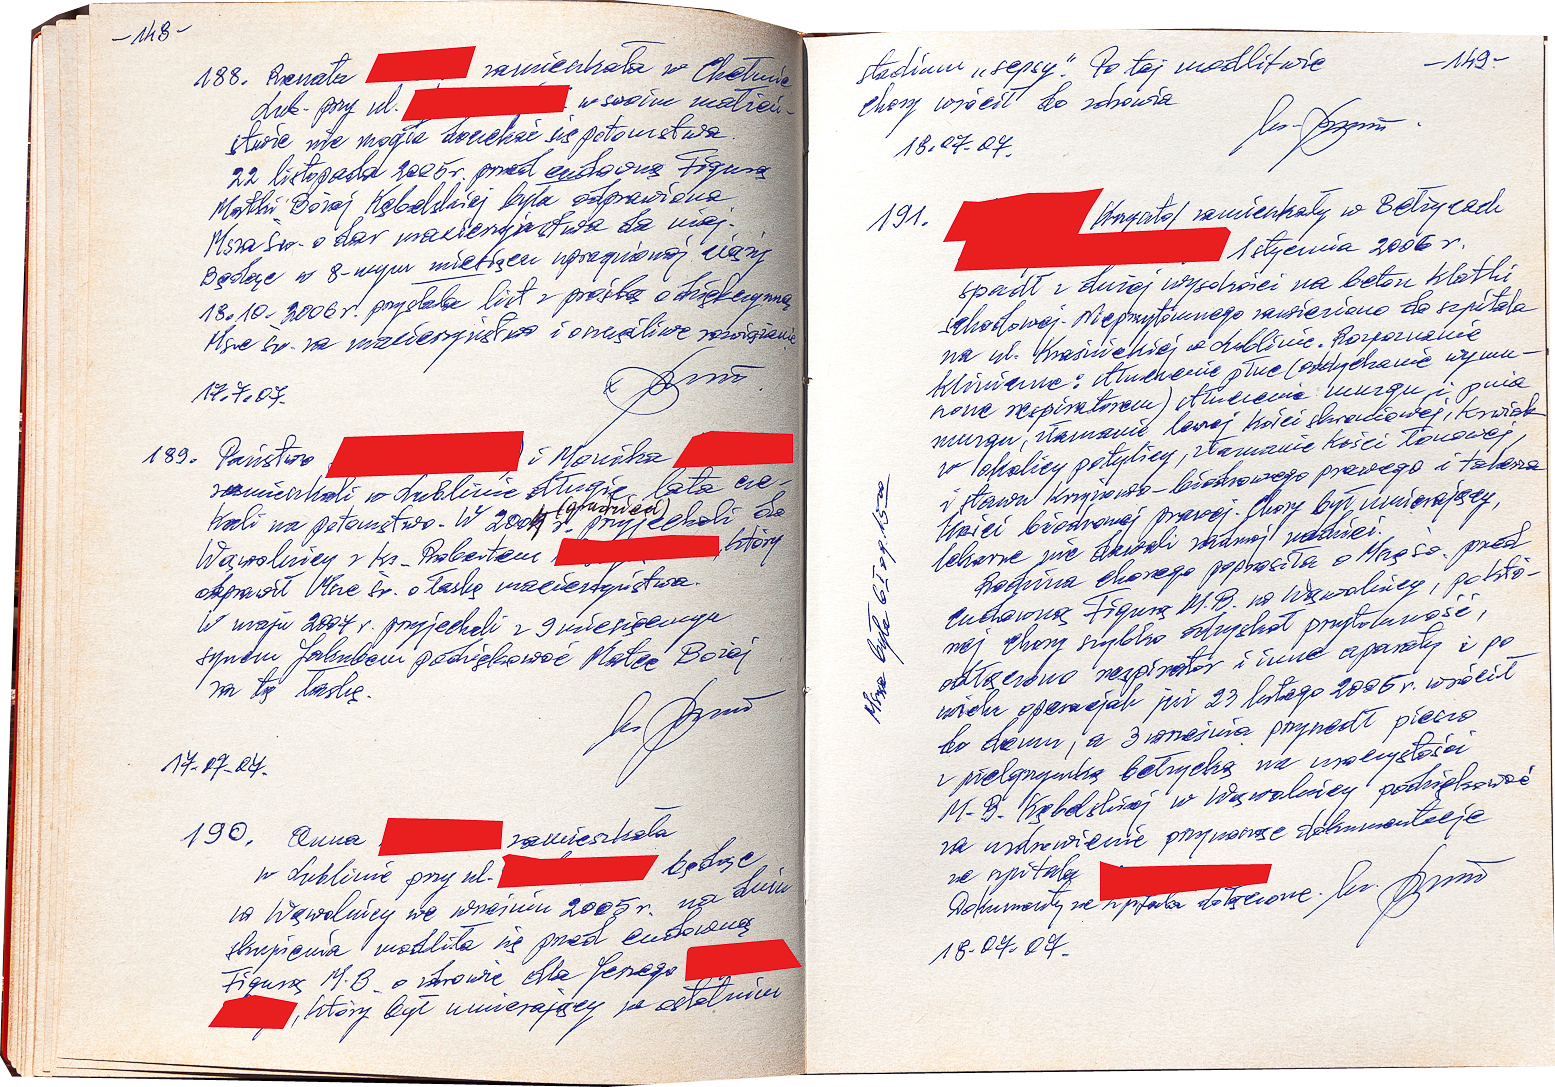 -148-
188. Renata zamieszkała w Chełmie
Lub. przy ul. w swoim małżeń-
stwie nie mogła doczekać się potomstwa.
22 listopada 2005 r. przed cudowną Figurą
Matki Bożej Kębelskiej była odprawiona
Msza św. o dar macierzyństwa dla niej.
Będąc w 8-mym miesiącu upragnionej ciąży
18.10.2006 r. przysłała list z prośbą o dziękczynną
Mszę św. za macierzyństwo i o szczęśliwe rozwiązanie
17.7.07.
189. Państwo i Monika
zamieszkali w Lublinie długie lata cze-
kali na potomstwo. W 2004 r. (grudzień) przyjechali do
Wąwolnicy z ks. Robertem, który
odprawił Mszę św. o łaskę macierzyństwa.
W maju 2007 r. przyjechali z 9 miesięcznym
synem Jakubem podziękować Matce Bożej
za tę łaskę.
ks.
17-07-07.
190. Anna zamieszkała
w Lublinie przy ul. będąc
w Wąwolnicy we wrześniu 2005 r. na dniu
skupienia modliła się przed cudowną
Figurą M.B. o zdrowie dla Jerzego
, który był umierający w ostatnim
-149-
stadium "sepsy". Po tej modlitwie
chory wrócił do zdrowia
ks.
18.07.07.
191. Krzysztof zamieszkały w Bełżycach
1 stycznia 2006 r.
spadł z dużej wysokości na beton klatki
schodowej. Nieprzytomnego zawieziono do szpitala
na ul. Kraśnickiej w Lublinie. Rozpoznanie
kliniczne: stłuczenie płuc (oddychanie wymu-
szone respiratorem) stłuczenie mózgu i pnia
mózgu, złamanie lewej kości skroniowej, krwiak
w okolicy potylicy, złamanie kości łonowej,
i stawu krzyżowo-biodrowego prawego i talerza
kości biodrowej prawej. Chory był umierający,
lekarze nie dawali żadnej nadziei.
Rodzina chorego poprosiła o Mszę św. przed
cudowną Figurą M.B. w Wąwolnicy, po któ-
rej chory szybko odzyskał przytomność,
odłączono respirator i inne aparaty i po
wielu operacjach już 23 lutego 2006 r. wrócił
do domu, a 3 września przyszedł pieszo
z pielgrzymką bełżycką na uroczystości
M.B. Kębelskiej w Wąwolnicy podziękować
za uzdrowienie przynosząc dokumentację
ze szpitala
Dokumenty ze szpitala dołączone. ks.
18-07-07.
Msza była